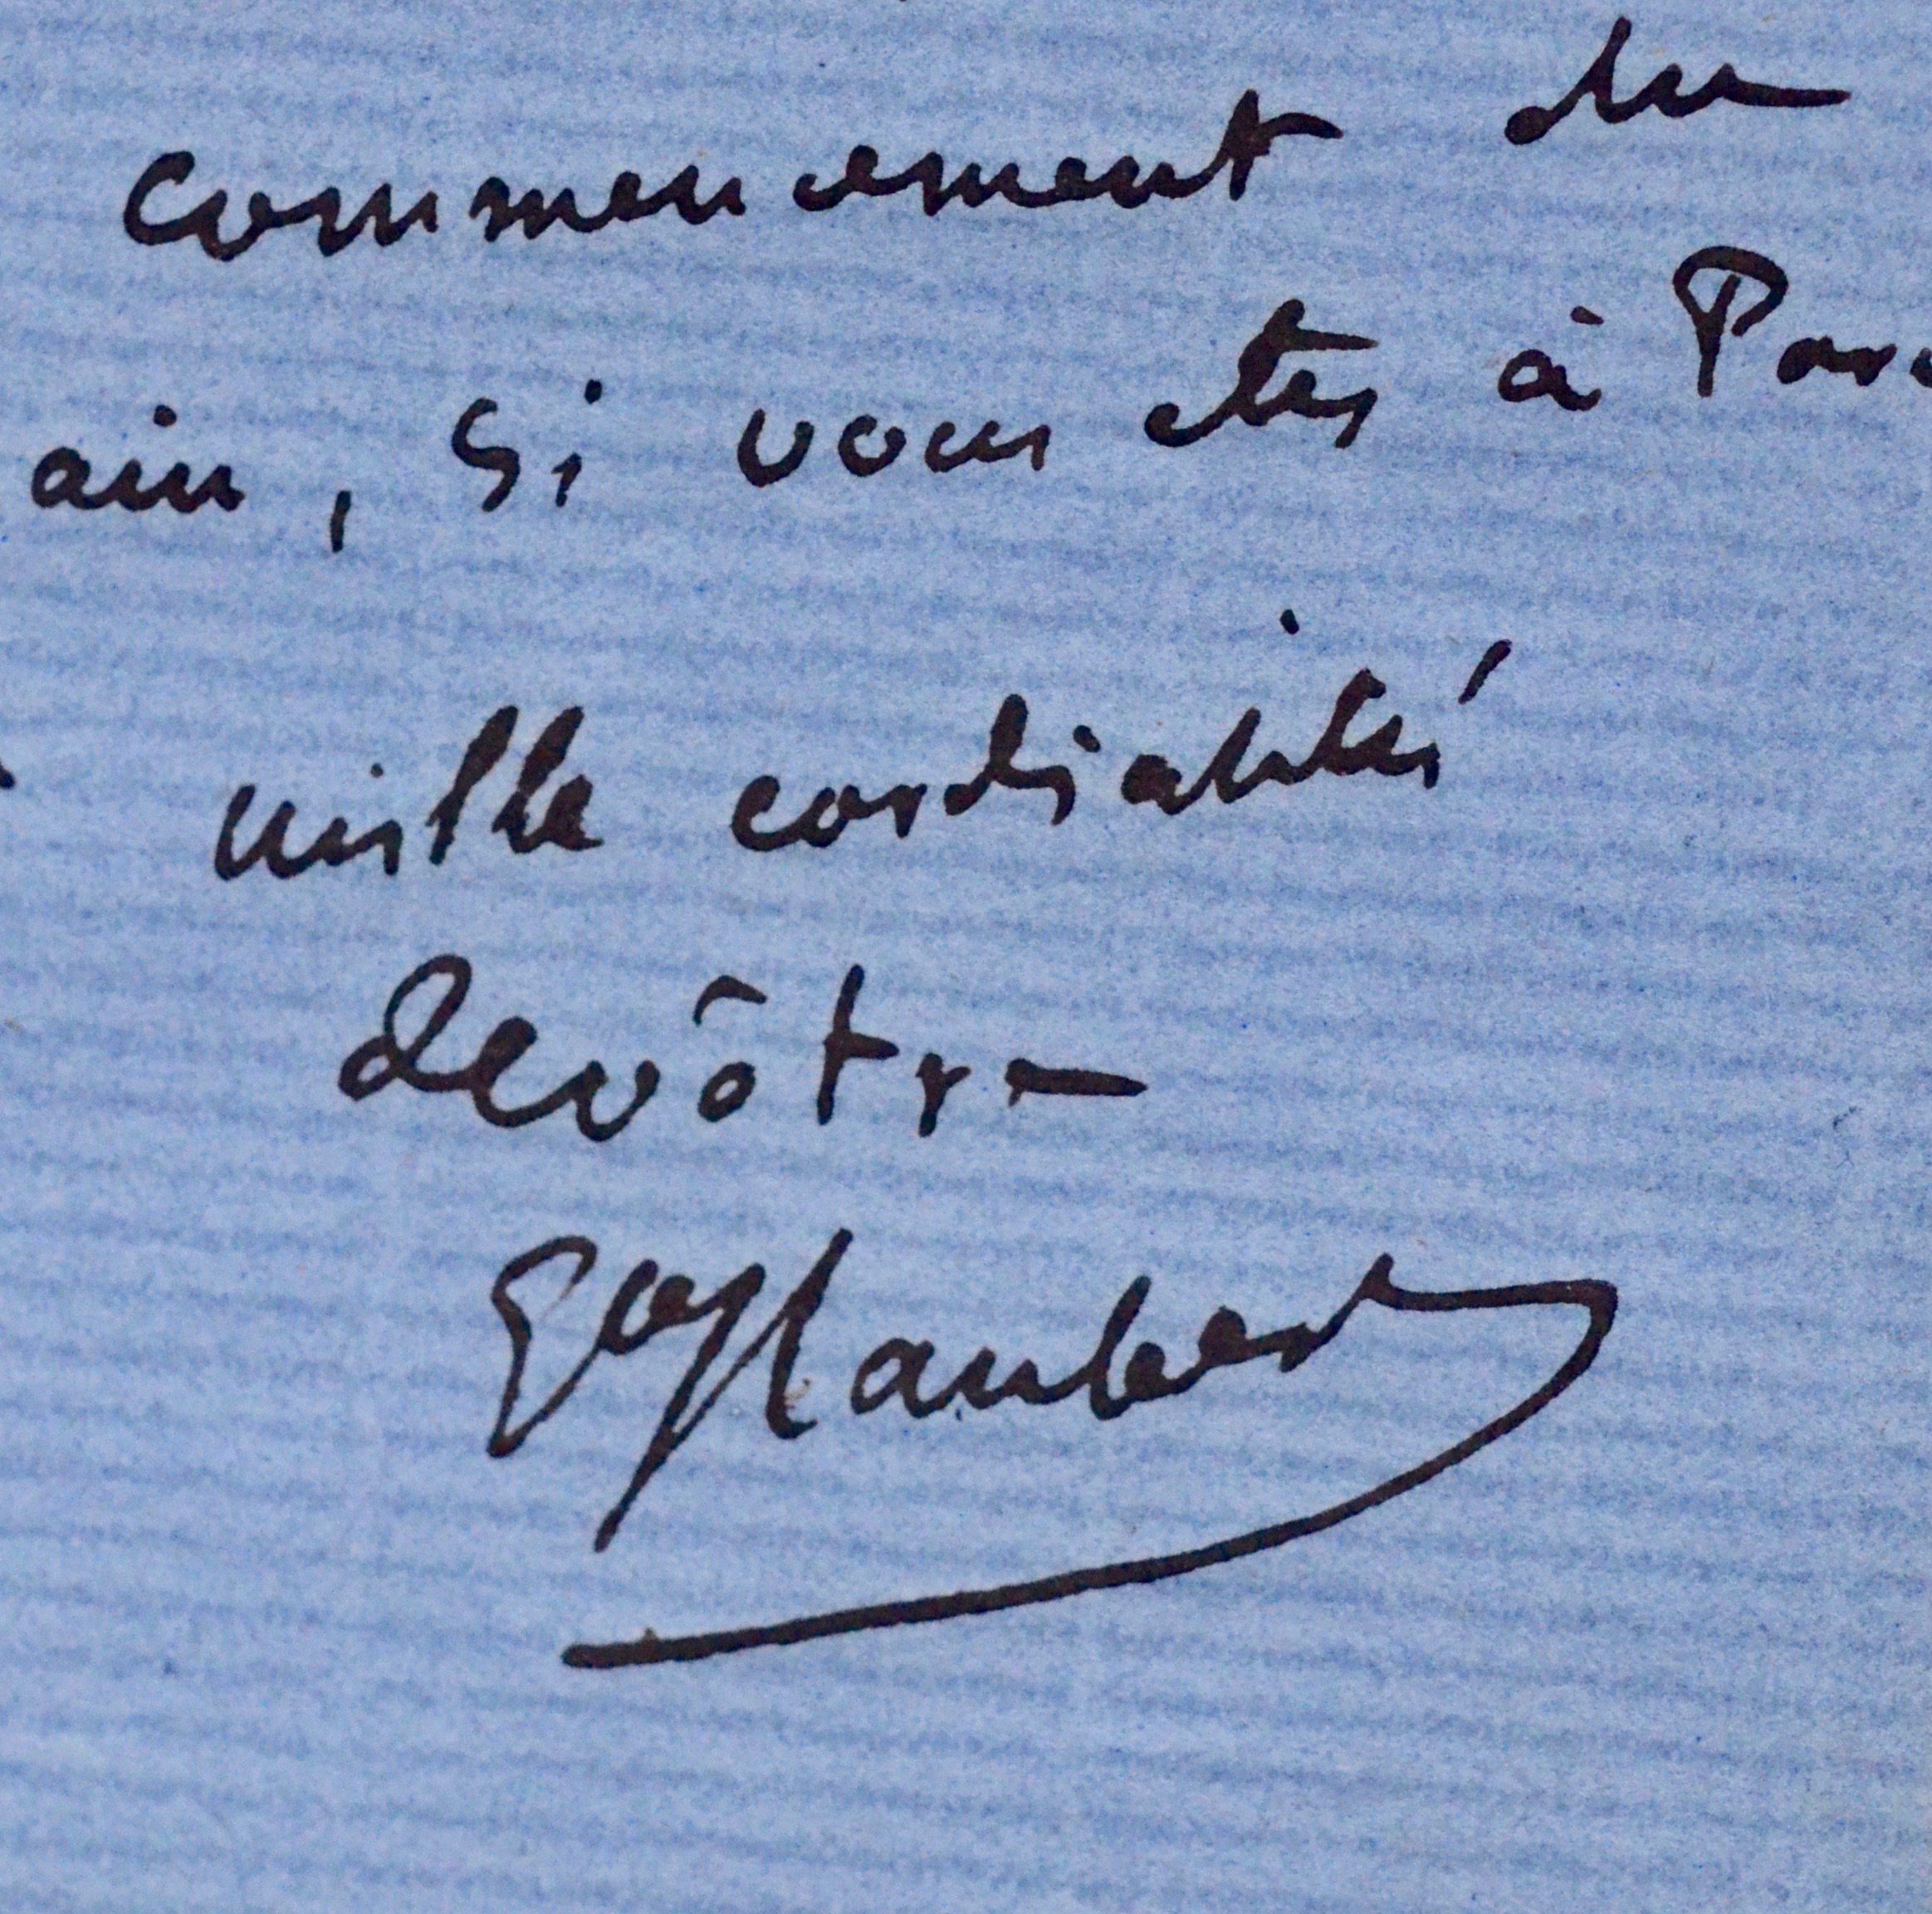 commencement du
ain, si vous etes à Par
mille cordialités
devôtre
GFlaubert